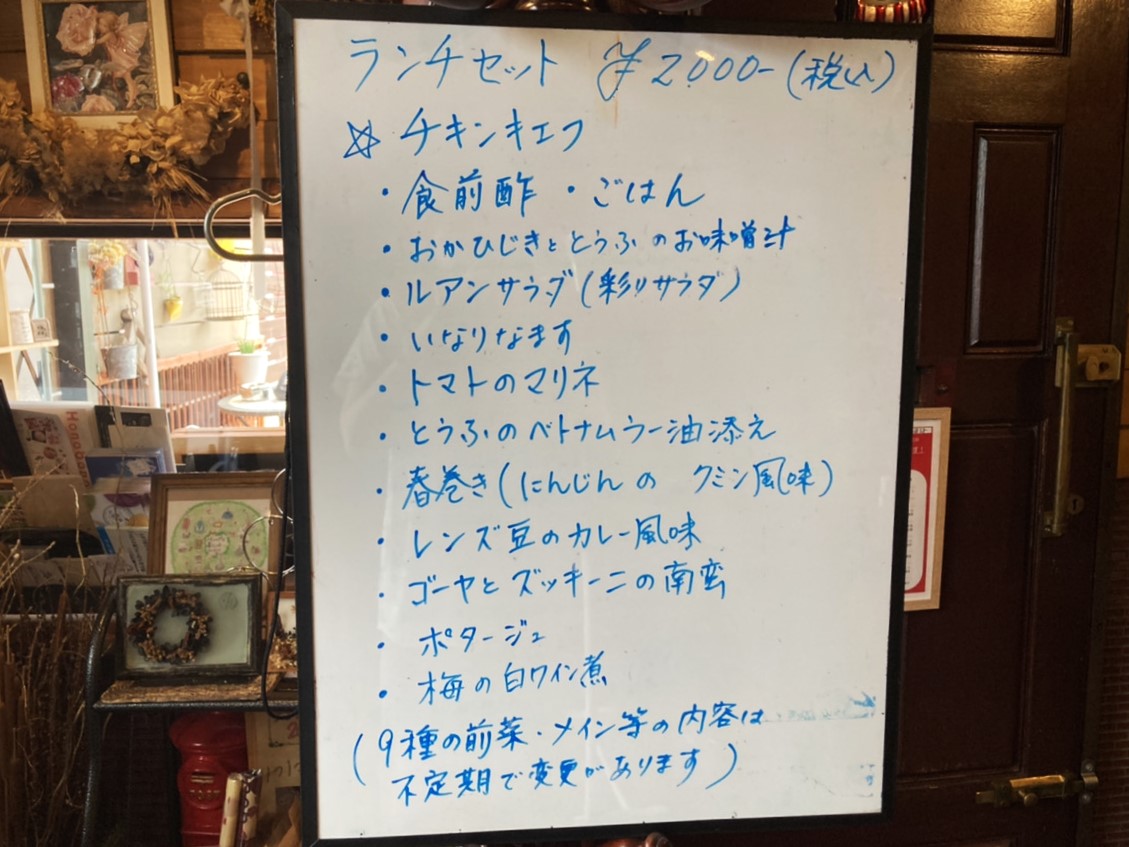 ランチセット ¥2000-(税込)
☆・チキンキエフ
・食前酢 ・ごはん
・おかひじきととうふのお味噌汁
・ルアンサラダ(彩りサラダ)
・いなりなます
・トマトのマリネ
・とうふのベトナムラー油添え
・春巻き(にんじんの クミン風味)
・レンズ豆のカレー風味
・ゴーヤとズッキーニの南蛮
・ポタージュ
・梅の白ワイン煮
(9種の前菜・メイン等の内容は
不定期で変更があります)